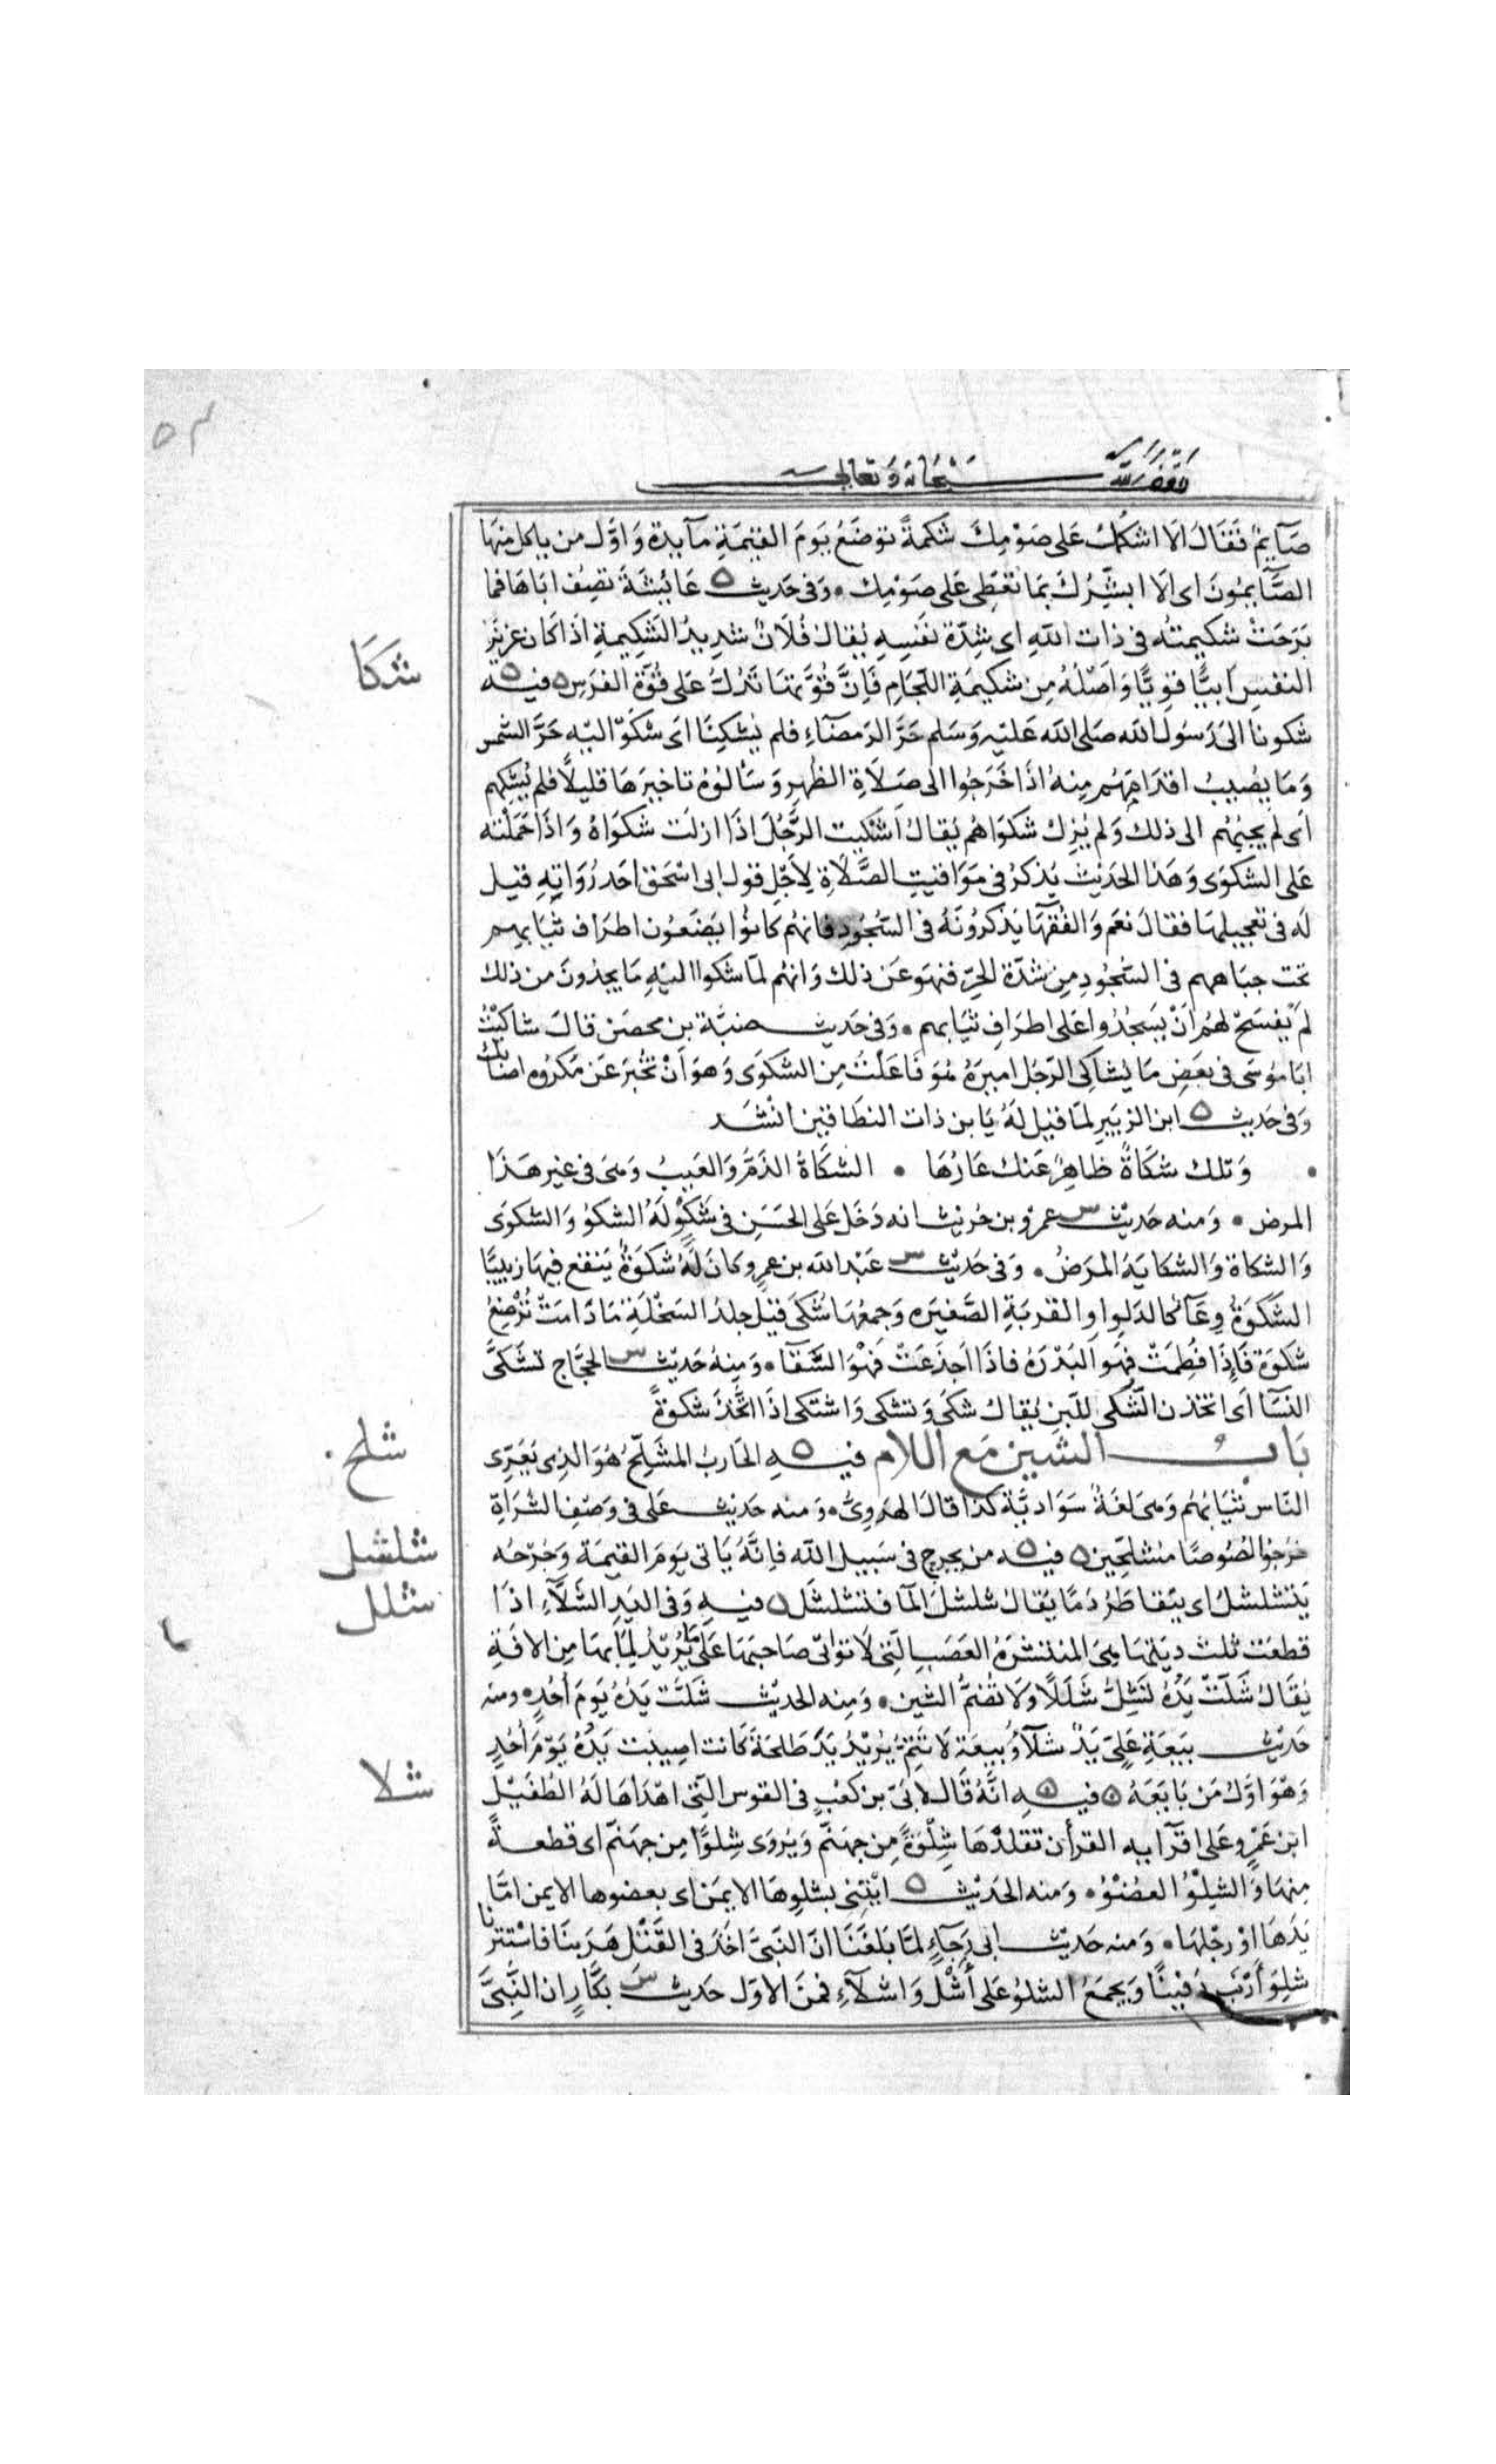 وقف لله سبحانه وتعالى
صَآيمٌ فَقَالَ الَا اشكمُكَ عَلى صَوْمِكَ شكمةً توضَعُ يَومَ القيٰمَةِ مآيدة وَاوَّل من ياكل منهَا
الصَّآيمُونَ اى الَا ابشِّرُكَ بمَا تُعْطى عَلى صَوْمِك • وَفى حَديث ه عَايشَةَ تصِفُ ابَاهَا فما
بَرَحَتْ شكيمتُه فى ذات اللهِ اى شِدّة نفسِهِ يُقالُ فُلَانٌ شدِيدُ الشكِيمةِ اذَا كان عزيز
النفسِ ابيًّا قوِيًّا وَاصْلُهُ مِن شكيمَةِ اللّجَامِ فَانَّ قُوَّتهَا تَدُلُّ عَلى قُوّة الفرَسِ ه فيـه
شكا
شكونا الى رَسُول الله صَلى الله عَليْهِ وَسَلم حَرَّ الرَمضَآءِ فلم يُشكِنَا اى شكَوْا اليْهِ حَرَّ الشمس
وَمَا يصُيبُ اقدَامَهُم مِنهُ اذَا خَرَجُوا الى صَلَاةِ الظُهرِ وَسَألُوهُ تاخيرَهَا قليلًا فلم يُشكِهم
اى لم يجبْهُم الى ذلك وَلم يُزِلْ شكوَاهُم يُقالُ اَشكيت الرَّجُلَ اذَا ازلْت شكوَاهُ وَاذَا حَمَلْته
عَلى الشكوَى وَهَذا الحَديث يُذكرُ فى مَوَاقيتِ الصَّلَاةِ لِاَجْلِ قول ابى اسْحٰق احَد رُوَاتِهِ قيل
لَه فى تعجيلهَا فقالَ نعَم وَالفُقهَآ يَذكرُونَهُ فى السُّجُودِ فانهُم كانوُا يَضَعُون اطرَاف ثيَابهم
تحت جبَاههم فى السُّجُودِ مِن شدّة الحَرِّ فنهوا عَن ذلك وَانهُم لمّا شكوا اليْهِ مَا يجدُونَ من ذلك
لمْ يفسَحْ لهُم انْ يَسجُدُوا عَلى اطرَافِ ثيَابهم • وَفى حَديث ضبّة بن محصَن قالَ شاكَيْتُ
ابَا مُوسَى فى بعَضِ مَا يُشاكِى الرَّجُل اميرَهُ هُوَ فَاعَلْتُ مِن الشكوَى وَهوَ انْ تخبرَ عَن مَكرُوهٍ اصَابَك
وَفى حَديث ه ابن الزبَيرِ لمّا قيل لَهُ يَا بن ذات النطَاقين انشد
• وَتلك شكَاةٌ ظاهِرٌ عَنك عَارُهَا • الشكَاةُ الذَمُّ وَالعَيبُ وَهىَ فى غير هَذَا
المرض • وَمنه حَديث س عمرو بن حُريث انه دَخل عَلى الحَسَنِ فى شَكْوٍ لَهُ الشكوُ وَالشكوَى
وَالشكاة وَالشكايَة المرَضُ • وَفى حَديث س عَبْد الله بن عمرو كانَ لَهُ شكوَةٌ يَنقع فِيهَا زبيبًا
الشكوَةُ وِعَآءٌ كالدَلوِ اوِ القربَةِ الصَّغيرَه وَجمعُهَا شُكى قيل جلدُ السَخْلَةِ مَا دَامَتْ تُرْضِعُ
شكوَة فَاِذَا فطِمَتْ فهو البَدْرَهُ فاذَا اجذعَتْ فهْوَ السَّقآ • وَمنهُ حَديث س الحجَّاج تشَكىَّ
النسَآ اى اتخذن الشكى للّبنِ يُقالُ شكى وَتشكى وَاشتكى اذَا اتَّخَذَ شكوةً
شلح •
بَابُ الشين مَع اللام فيـهِ ه الحَاربُ المشَلِّحُ هُوَ الذِى يُعَرّى
النَّاس ثيَابَهُم وَهىَ لغَةٌ سَوَاديَّة كذا قالَ الهرَوىُّ • وَمنه حَديث عَلى فى وَصْفِ الشُرَاةِ
شلشل
خرجُوا لصُوصًا مشلِّحِين ه فيـه ه من يجرح فى سَبيل الله فاِنَّهُ يَاتى يَومَ القيٰمَة وَجُرْحُه
شلل
يَتشلشلُ اى يَتقاطرُ دَمًا يُقالُ شلشلَ المآ فتشلشل ه فيـهِ وَفى اليَدِ الشَلَّآءِ اذَا
قطعَت ثلث ديَتهَا هِىَ المنتشرَةُ العَصَبِ التى لَا توَاتى صَاحبَهَا عَلى مَا يُرِيدُ لِمَا بهَا مِن الافَةِ
يُقالُ شَلَّتْ يَدُهُ تَشَلُّ شَلَلًا وَلَا تُضَمُّ الشين • وَمِنه الحدِيث شَلَّت يَدُهُ يَومَ اُحُدٍ • ومنه
حَديث بيَعَةِ عَلىٍّ يَدٌ شلَّآءُ وُبيعَة لَا تَتِمُّ يُرِيدُ يَدَ طَلحَةَ كَانت اصِيبَت يَدُهُ يَوْمَ اُحُدٍ
شلا
وَهْوَ اوَّلُ مَن بَايَعَهُ ه فيـهِ ه انَّهُ قَالَ لِابَىّ بن كعْبٍ فى القوسِ التِى اهْدَاهَا لَهُ الطفَيْل
ابن عَمرٍو عَلى اقرآيـهِ القرأن تقلدْهَا شِلْوَةً مِن جهنّم وَيُروَى شِلوًا مِن جهنّم اى قطعـةً
مِنهَا وَالشِلْوُ العضْوُ • وَمنه الحَديث ه ايْتِنِى بشلوِهَا الايمَن اى بعضوهَا الايمن امَّا
يَدَهَا اوْ رجْلهَا • وَمنه حَديث ابى رَجَآءٍ لمَّا بَلغَنَا انَّ النَبِىَّ اخَذ فى القَتْل هَرَبنَا فَاسْتثرنا
شلِوَ اَرْنَب دَفينًا وَيجمَعُ الشلوُ عَلى أَشْلٍ وَاشلآءٍ فمنَ الاوّل حَديث س بكّارٍ ان النَّبِىَّ